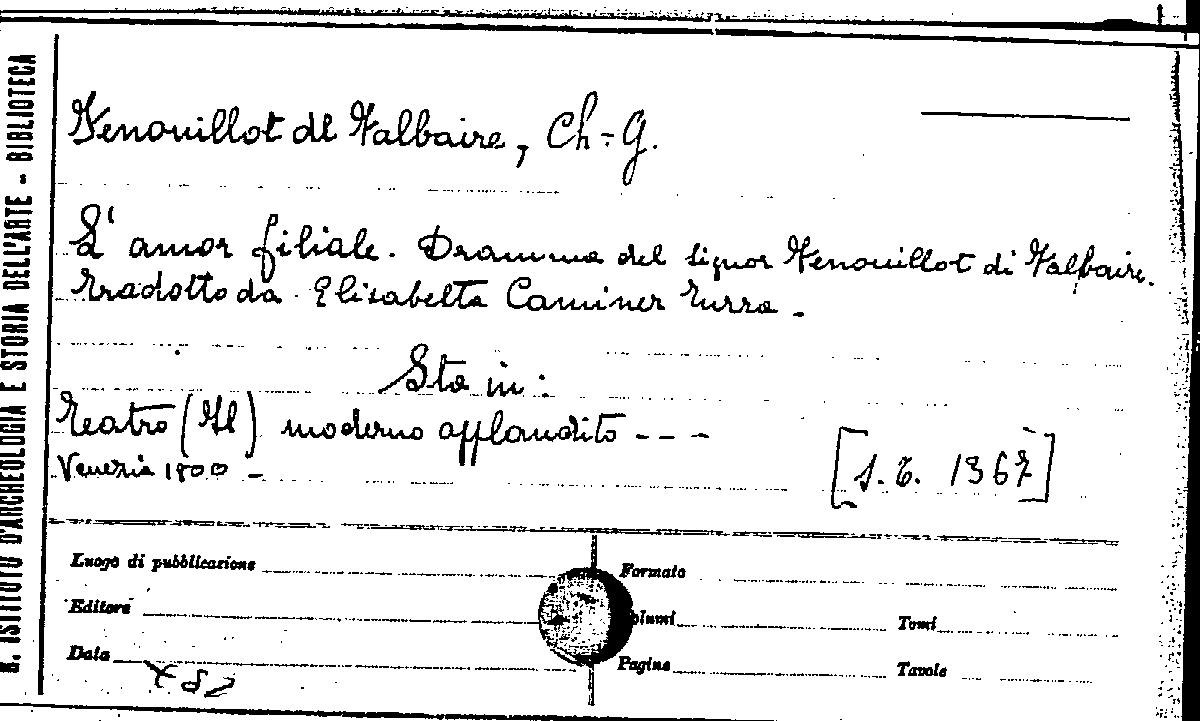 R. ISTITUTO D'ARCHEOLOGIA E STORIA DELL'ARTE - BIBLIOTECA
Fenouillot de Falbaire, Ch.-G.
L'amor filiale. Dramma del signor Fenouillot di Falbaire.
Tradotto da Elisabetta Caminer Turra -
Sta in:
Teatro (Il) moderno applaudito - - -
Venezia 1800 -
[S. T. 1367]
Luogo di pubblicazione Formato
Editore Volumi Tomi
Data Pagine Tavole